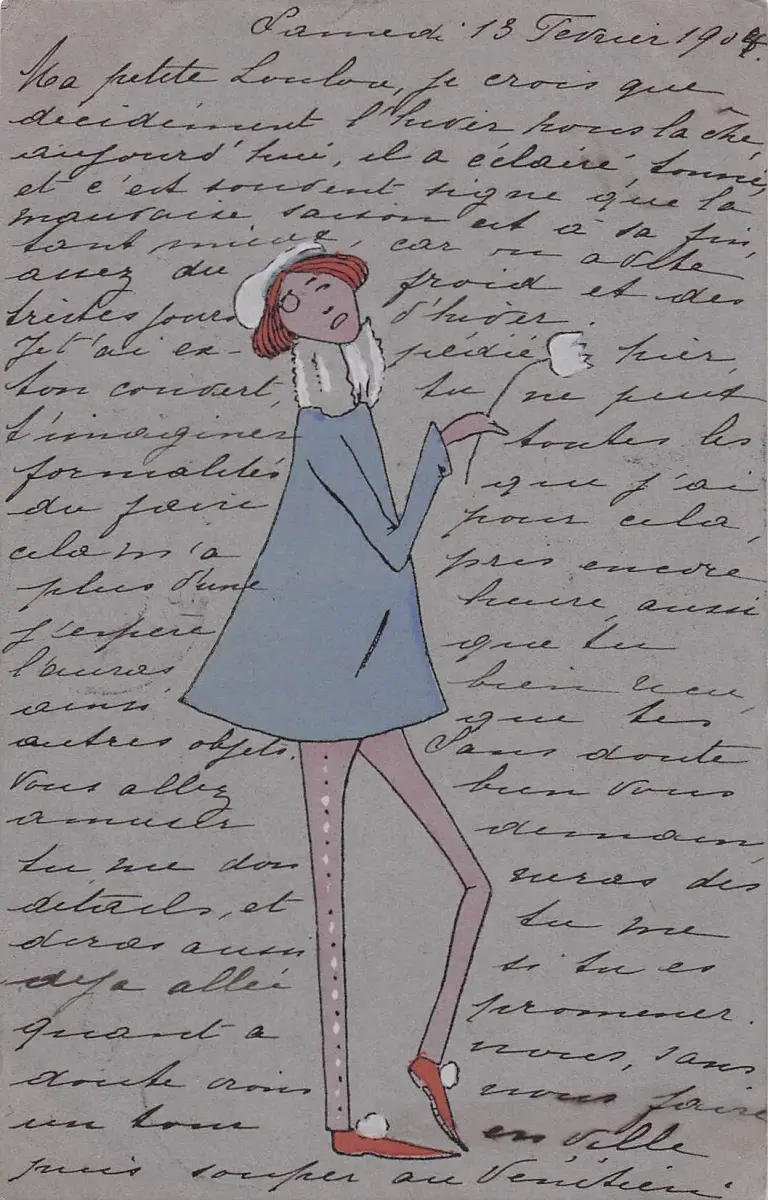 Samedi 13 Février 1904.
Ma petite Loulou, je crois que
décidément l'hiver nous lache
aujourd'hui, il a éclairé, tonné,
et c'est souvent signe que la
mauvaise saison est à sa fin,
tant mieux, car on a
assez du froid et des
tristes jours d'hiver.
Je t'ai ex- pédié hier,
ton couvert, tu ne peux
t'imaginer toutes les
formalités que j'ai
du faire pour cela,
cela m'a pris encore
plus d'une heure, aussi
j'espère que tu
l'auras bien reçu,
ainsi que tes
autres objets. Sans doute
vous allez bien vous
amuser demain,
tu me don neras des
détails, et tu me
diras aussi si tu es
déja allée promener.
quant a nous, sans
doute irons nous faire
un tour en ville
puis souper au Vénitien.